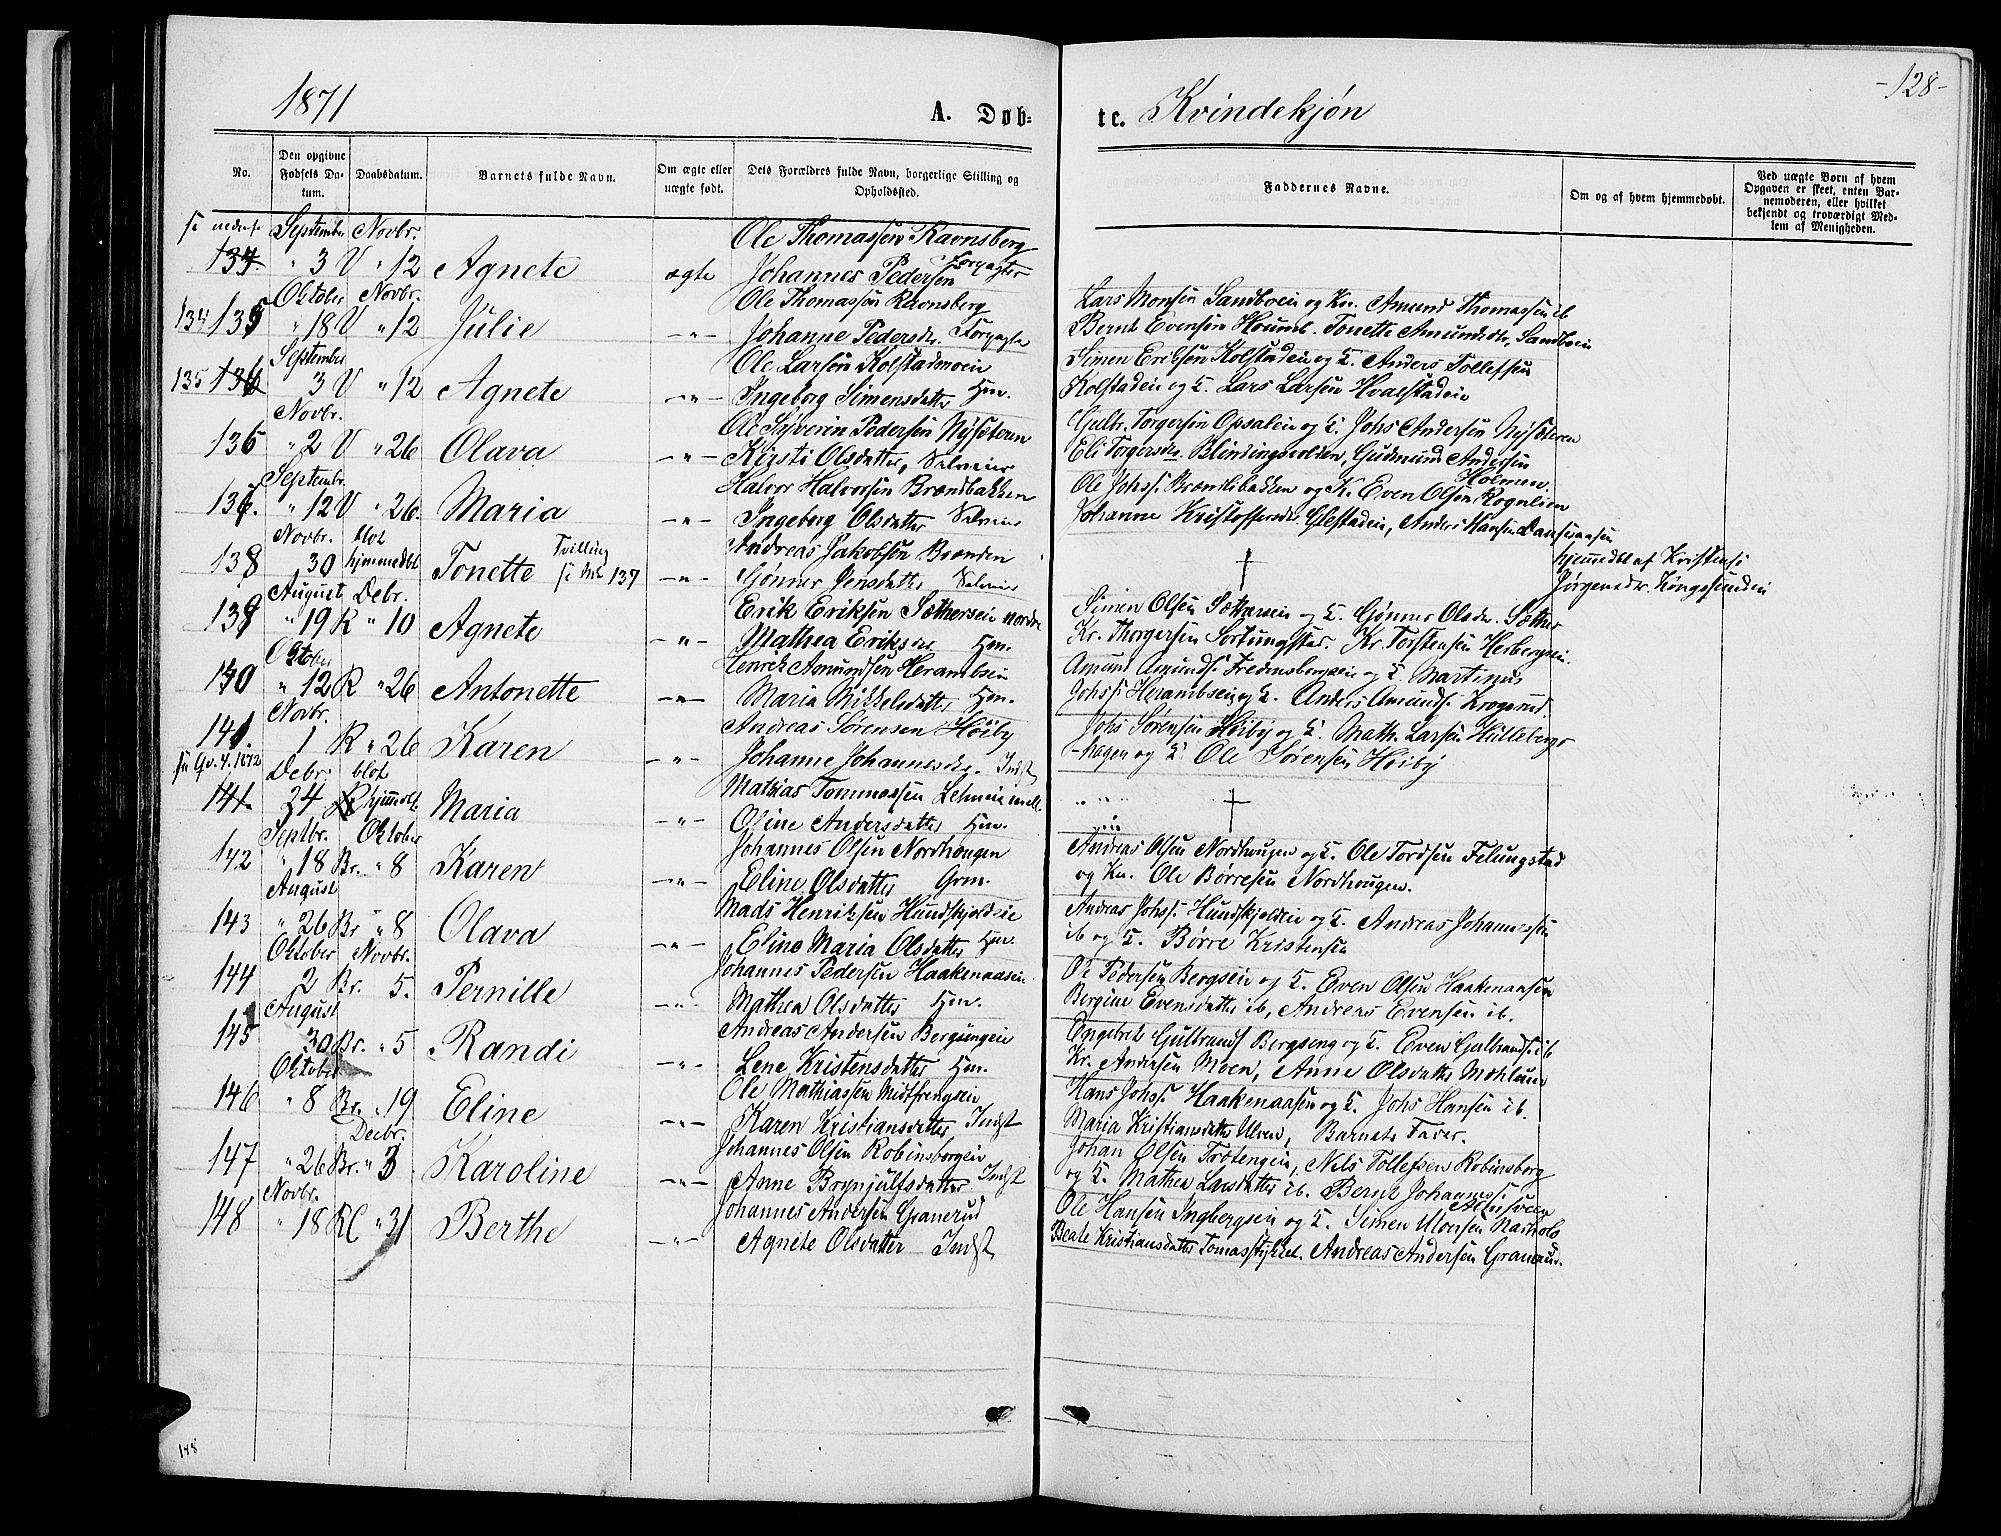 1871
A. Døb-
te. Kvindekjøn
-128-
No.
Den opgivne Fødsels Datum.
Daabsdatum.
Barnets fulde Navn.
Om ægte eller uægte født.
Dets Forældres fulde Navn, borgerlige Stilling og Opholdssted.
Faddernes Navne.
Om og af hvem hjemmedøbt.
Ved uægte Børn af hvem Opgaven er skeet, enten Barnemoderen, eller hvilket bekjendt og troværdigt Medlem af Menigheden.
September Novbr. Ole Thomassen Ravnsberg
134. " 3 V " 12 Agnete ægte Johannes Pedersen
Oktober Novbr. Ole Thomassen Ravnsberg Lars Monsen Sandboeie og Kr. Amund Thomassen ib
134 135 " 18 V " 12 Julie -"- Johanne Pedersdr. Bernt Evensen Tonette Amundsdtr. Sandboeie
September Ole Larsen Kolstadmoeie Simen Eriksen Kolstadeie og K. Anders Tollefsen
135 136 3 V " 12 Agnete -"- Ingeborg Simensdatter Hm. Kolstadeie og K. Lars Larsen Hvalstadeie
Novbr. Ole Syverin Pedersen Nysæteren Gulbr. Torgersen Opsaleie og K. Johs Andersen Nysæteren
136 " 2 V " 26 Olava -"- Kirsti Olsdatter, Selveier Eli Torgersdr. Blindingsvolden, Gudmund Andersen
Septembr. Halvor Halvorsen Brændbakken Holmen.
Ole Johs: Brændbakken og K. Even Olsen Rognlien
137. " 12 V " 26. Maria -"- Ingeborg Olsdatter Selveier Johanne Kristoffersdr. Glestadeie, Anders Hansen
Novbr. blot Andreas Jakobsen Brænden
138 30 hjemmedbt Tonette Tvilling se No 137 -"- Gønner Jensdatter Selveier † hjemmedbt af Kristense
August Debr. Jørgensdr. Kongssundeie
139 " 19 R " 10 Agnete -"- Erik Eriksen Sætherseie nordre Simen Olsen Sætherseie og K. Gønner Olsdr. Sæther
Oktober Mathea Eriksdr Hm. Kr. Thorgersen Kr. Torstensen Herbergseie.
140 " 12 R " 26 Antonette -"- Henrik Amundsen Herambseie Amund Amunds: Fredensborgseie og K. Martinus
Novbr. Maria Mikkelsdatter Hm. Johs: Herambseie og K. Anders Amunds: Krogsrud.
141. 1 R " 26 Karen -"- Andreas Sørensen Høiby Johs Sørensen Høiby og K. Math. Larsen Hilleberg-
Debr. blot Johanne Johannesdr. Indst -hagen og K. Ole Sørensen Høiby
141. 24 hjemmdt. Maria -"- Mathias Tommassen mell. " " " †
Septbr. Oktober Oline Andersdatter Hm.
142 " 18 Br. " 8 Karen -"- Johannes Olsen Nordhougen Andreas Olsen Nordhougen og K. Ole Tordsen Felungstad
August Eline Olsdatter Grm. og Kn. Ole Børresen Nordhougen.
143 " 26 Br " 8 Olava -"- Mads Henriksen Hundskjoldeie Andreas Johs: Hundskjoldeie og K. Andreas Johannessen
Oktober Novbr. Eline Maria Olsdatter Hm. ib og K. Børre Kristensen
144 2 Br. 5. Pernille -"- Johannes Pedersen Haakenaasen Ole Pedersen Bergseie og K. Even Olsen Haakenaasen
August Mathea Olsdatter Hm. Bergine Evensdatter ib, Andreas Evensen ib.
145 30 Br. " 5 Randi -"- Andreas Andersen Bergsengeie Engebret Gulbrands Bergseng og K. Even Gulbrands: ib
Oktober Lene Kristensdatter Hm. Kr. Andersen Moen, Anne Olsdatter
146 " 8 Br. " 19 Eline -"- Ole Mathiassen Midtfrengseie Hans Johs: Haakenaasen og K. Johs Hansen ib.
Decbr. Karen Kristiansdatter Indst Maria Kristiansdatter Ulven, Barnets Fader.
147 " 26 Br. " 3 Karoline -"- Johannes Olsen Robinsborgeie Johan Olsen Trøtengeie, Nils Tollefsen Robinsborg
Novbr. Anne Brynjulfsdatter Indst og K. Mathea Larsdatter ib. Bernt Johanness:
148 " 18 RC " 31 Berthe -"- Johannes Andersen Granerud Ole Hansen Ingbergseie og K. Simen Monsen
Agnete Olsdatter Indst Beate Kristiansdatter Tomasstykket. Andreas Andersen Granerud.
148